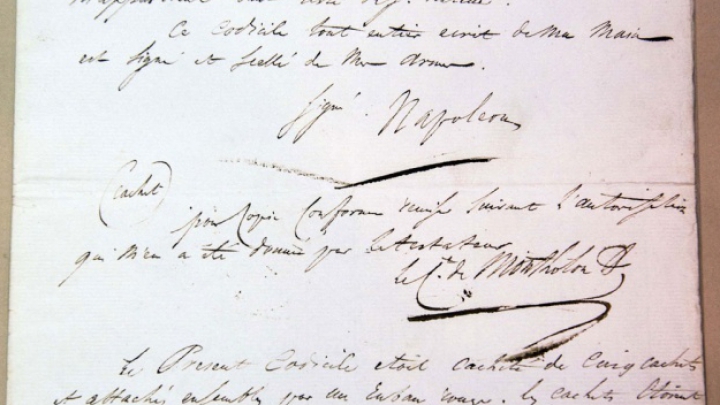 Ce Codicile tout entier ecrit de ma Main
est signé et scellé de mes armes.
signé Napoleon
(Cachet)
pour Copie Conforme suivant l'autorisation
qui m'en a été donnée par le testateur
Le Cte. de Montholon
Le Present Codicile etoit cacheté de Cinq cachets
et attachés ensemble par un Ruban rouge. les cachets etoient